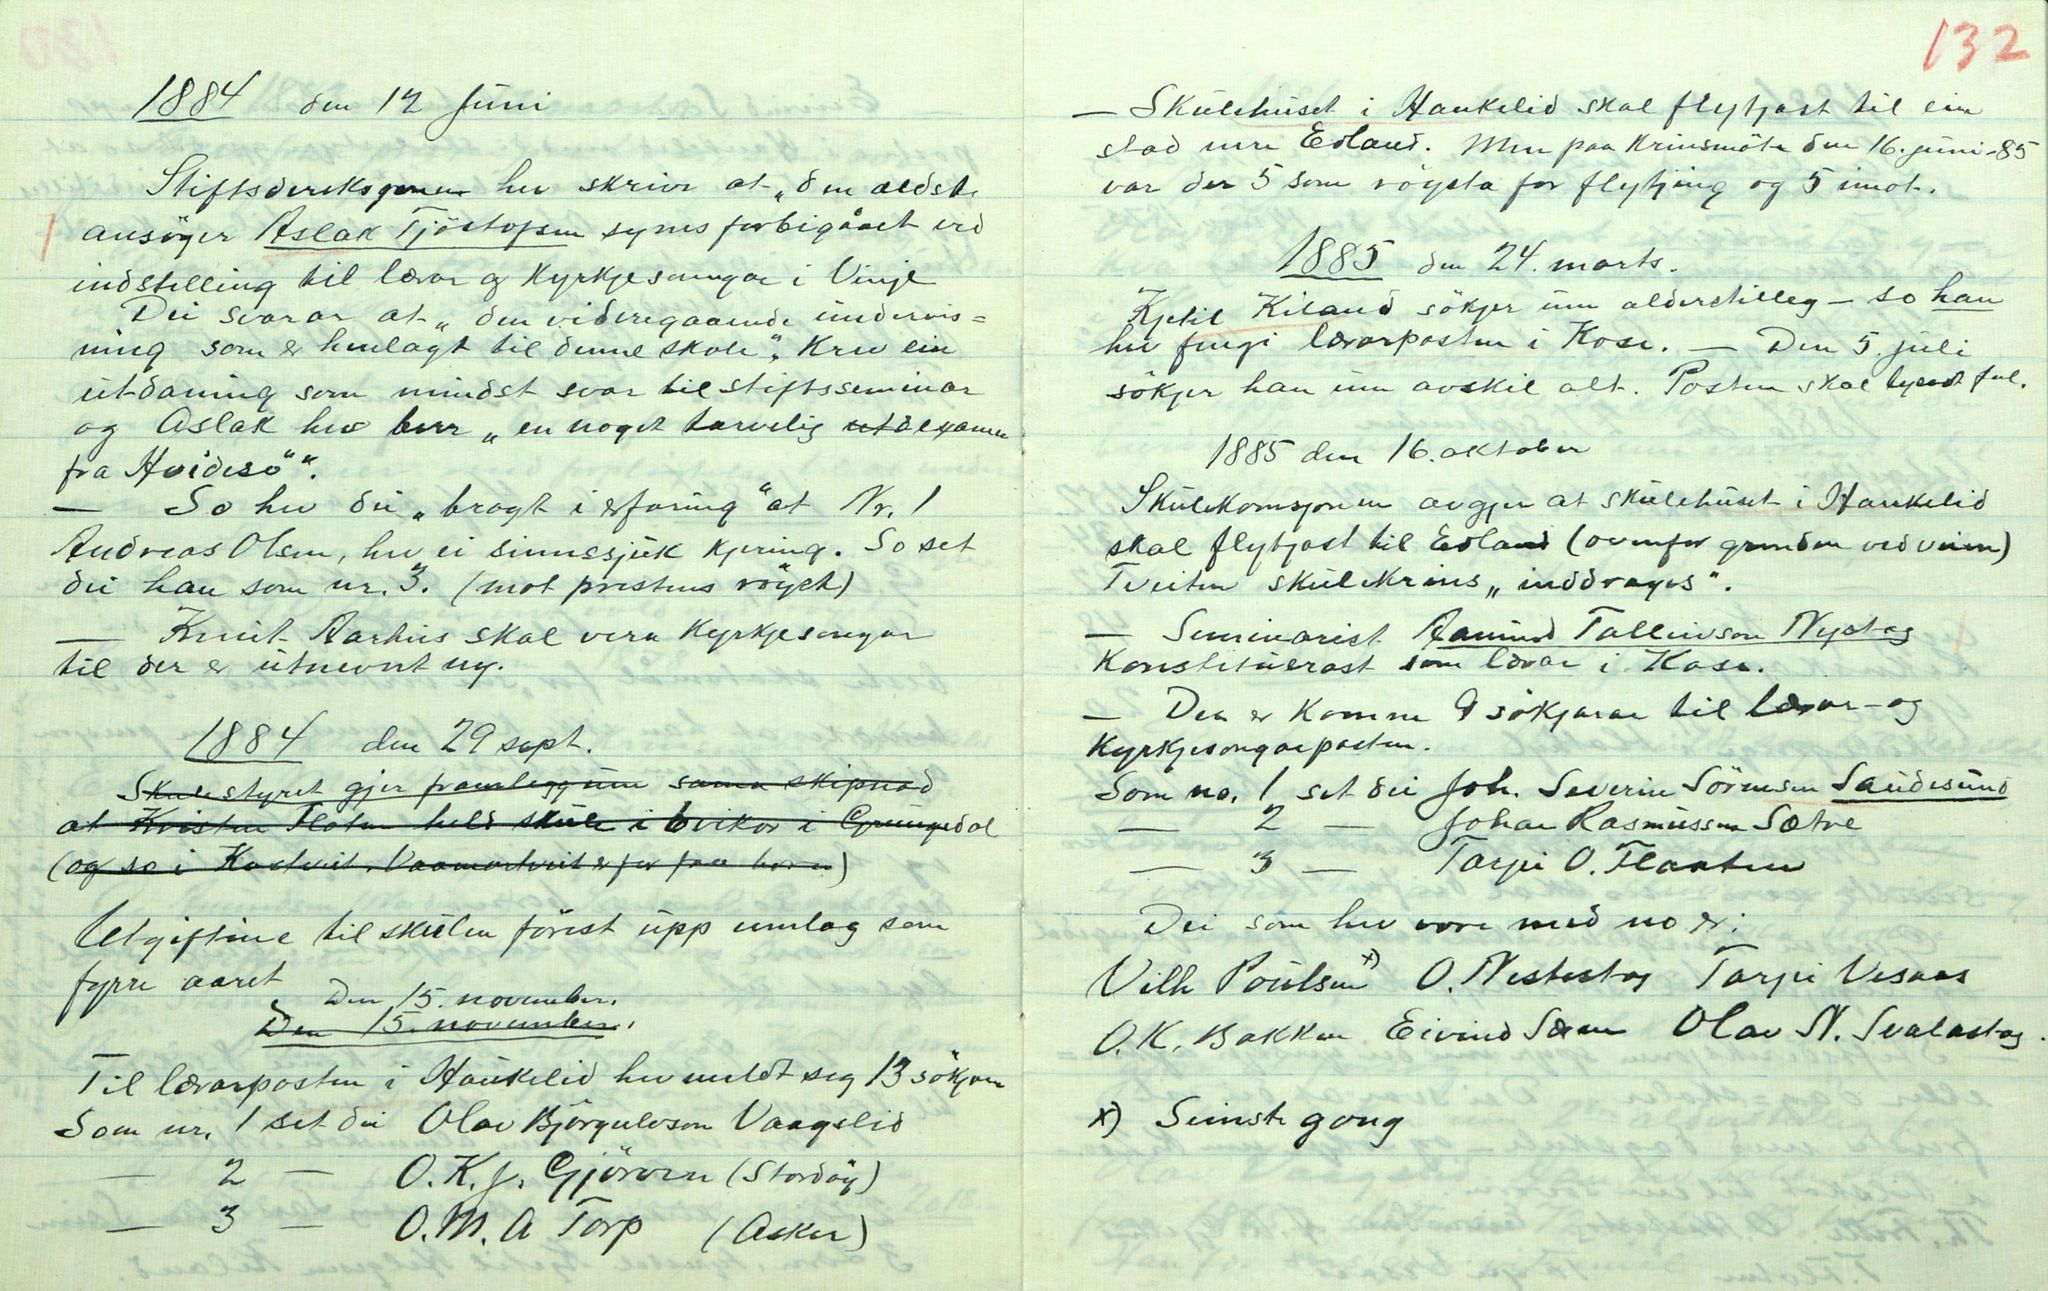 1884 den 12 Juni
Stiftsdireksjonen hev skrive at „den ældste
ansöger Aslak Tjöstofsen synes forbigåaet ved
indstelling til lærar og Kyrkjesongar i Vinje
Dei svarar at „den videregaaende undervis=
ning som er henlagt til denne skole“, Krev ein
utdaning som mindst svar til stiftsseminar
og Aslak hev berr „en noget tarvelig examen
fra Hvidesö“.
— So hev dei „bragt i erfaring“ at Nr. 1
Andreas Olsen, hev ei sinnssjuk kjering. So set
dei han som nr. 3. (mot prestens röyst)
— Knut Aarhus skal vera Kyrkjesongar
til der er utnevnt ny.
1884 den 29 sept.
Skulestyret gjer framlegg um sama skipnad
at Kristen Floten held skule i 6 vikor i Grungedal
(og so i Kostveit. Vaamartveit er for faa born)
Utgiftine til skulen förest upp umlag som
fyrre aaret
Den 15. november.
Den 15. november.
Til lærarposten i Haukelid hev meldt seg 13 sökjarar
Som nr. 1 set dei Olav Björgulvson Vaagslid
— 2 — O. K. J. Gjörven (Stordöy)
— 3 — O. M. A Torp (Asker)
132
— Skulehuset i Haukelid skal flytjast til ein
stad nere Edland. Men paa Krinsmöte den 16. juni -85
var der 5 som röysta for flytjing og 5 imot.
1885 den 24. marts.
Kjetil Kiland sökjer um alderstilleg — so han
hev fengi lærarposten i Kose. — Den 5. juli
sökjer han um avskil alt. Posten skal lysast ful.
1885 den 16. oktober
Skulekomsjonen avgjer at skulehuset i Haukelid
skal flytjast til Edland (ovenfor grinden ved veien)
Tveiten skulekrins „inddrages“.
— Seminarist Aamund Talleivson Nystog
Konstituerast som lærar i Kose.
— Der er komne 9 sökjarar til lærar- og
Kyrkjesongarposten.
Som no. 1 set dei Joh. Severin Sörensen Saudesund
— 2 — Johan Rasmussen Sætre
— 3 — Tarjei O. Flaaten
Dei som hev vore med no er:
Vilh Poulsen x) O. Nestestog Tarjei Vesaas
O. K. Bakken Eivind Sæm Olav N. Svalastog.
x) Seinste gong